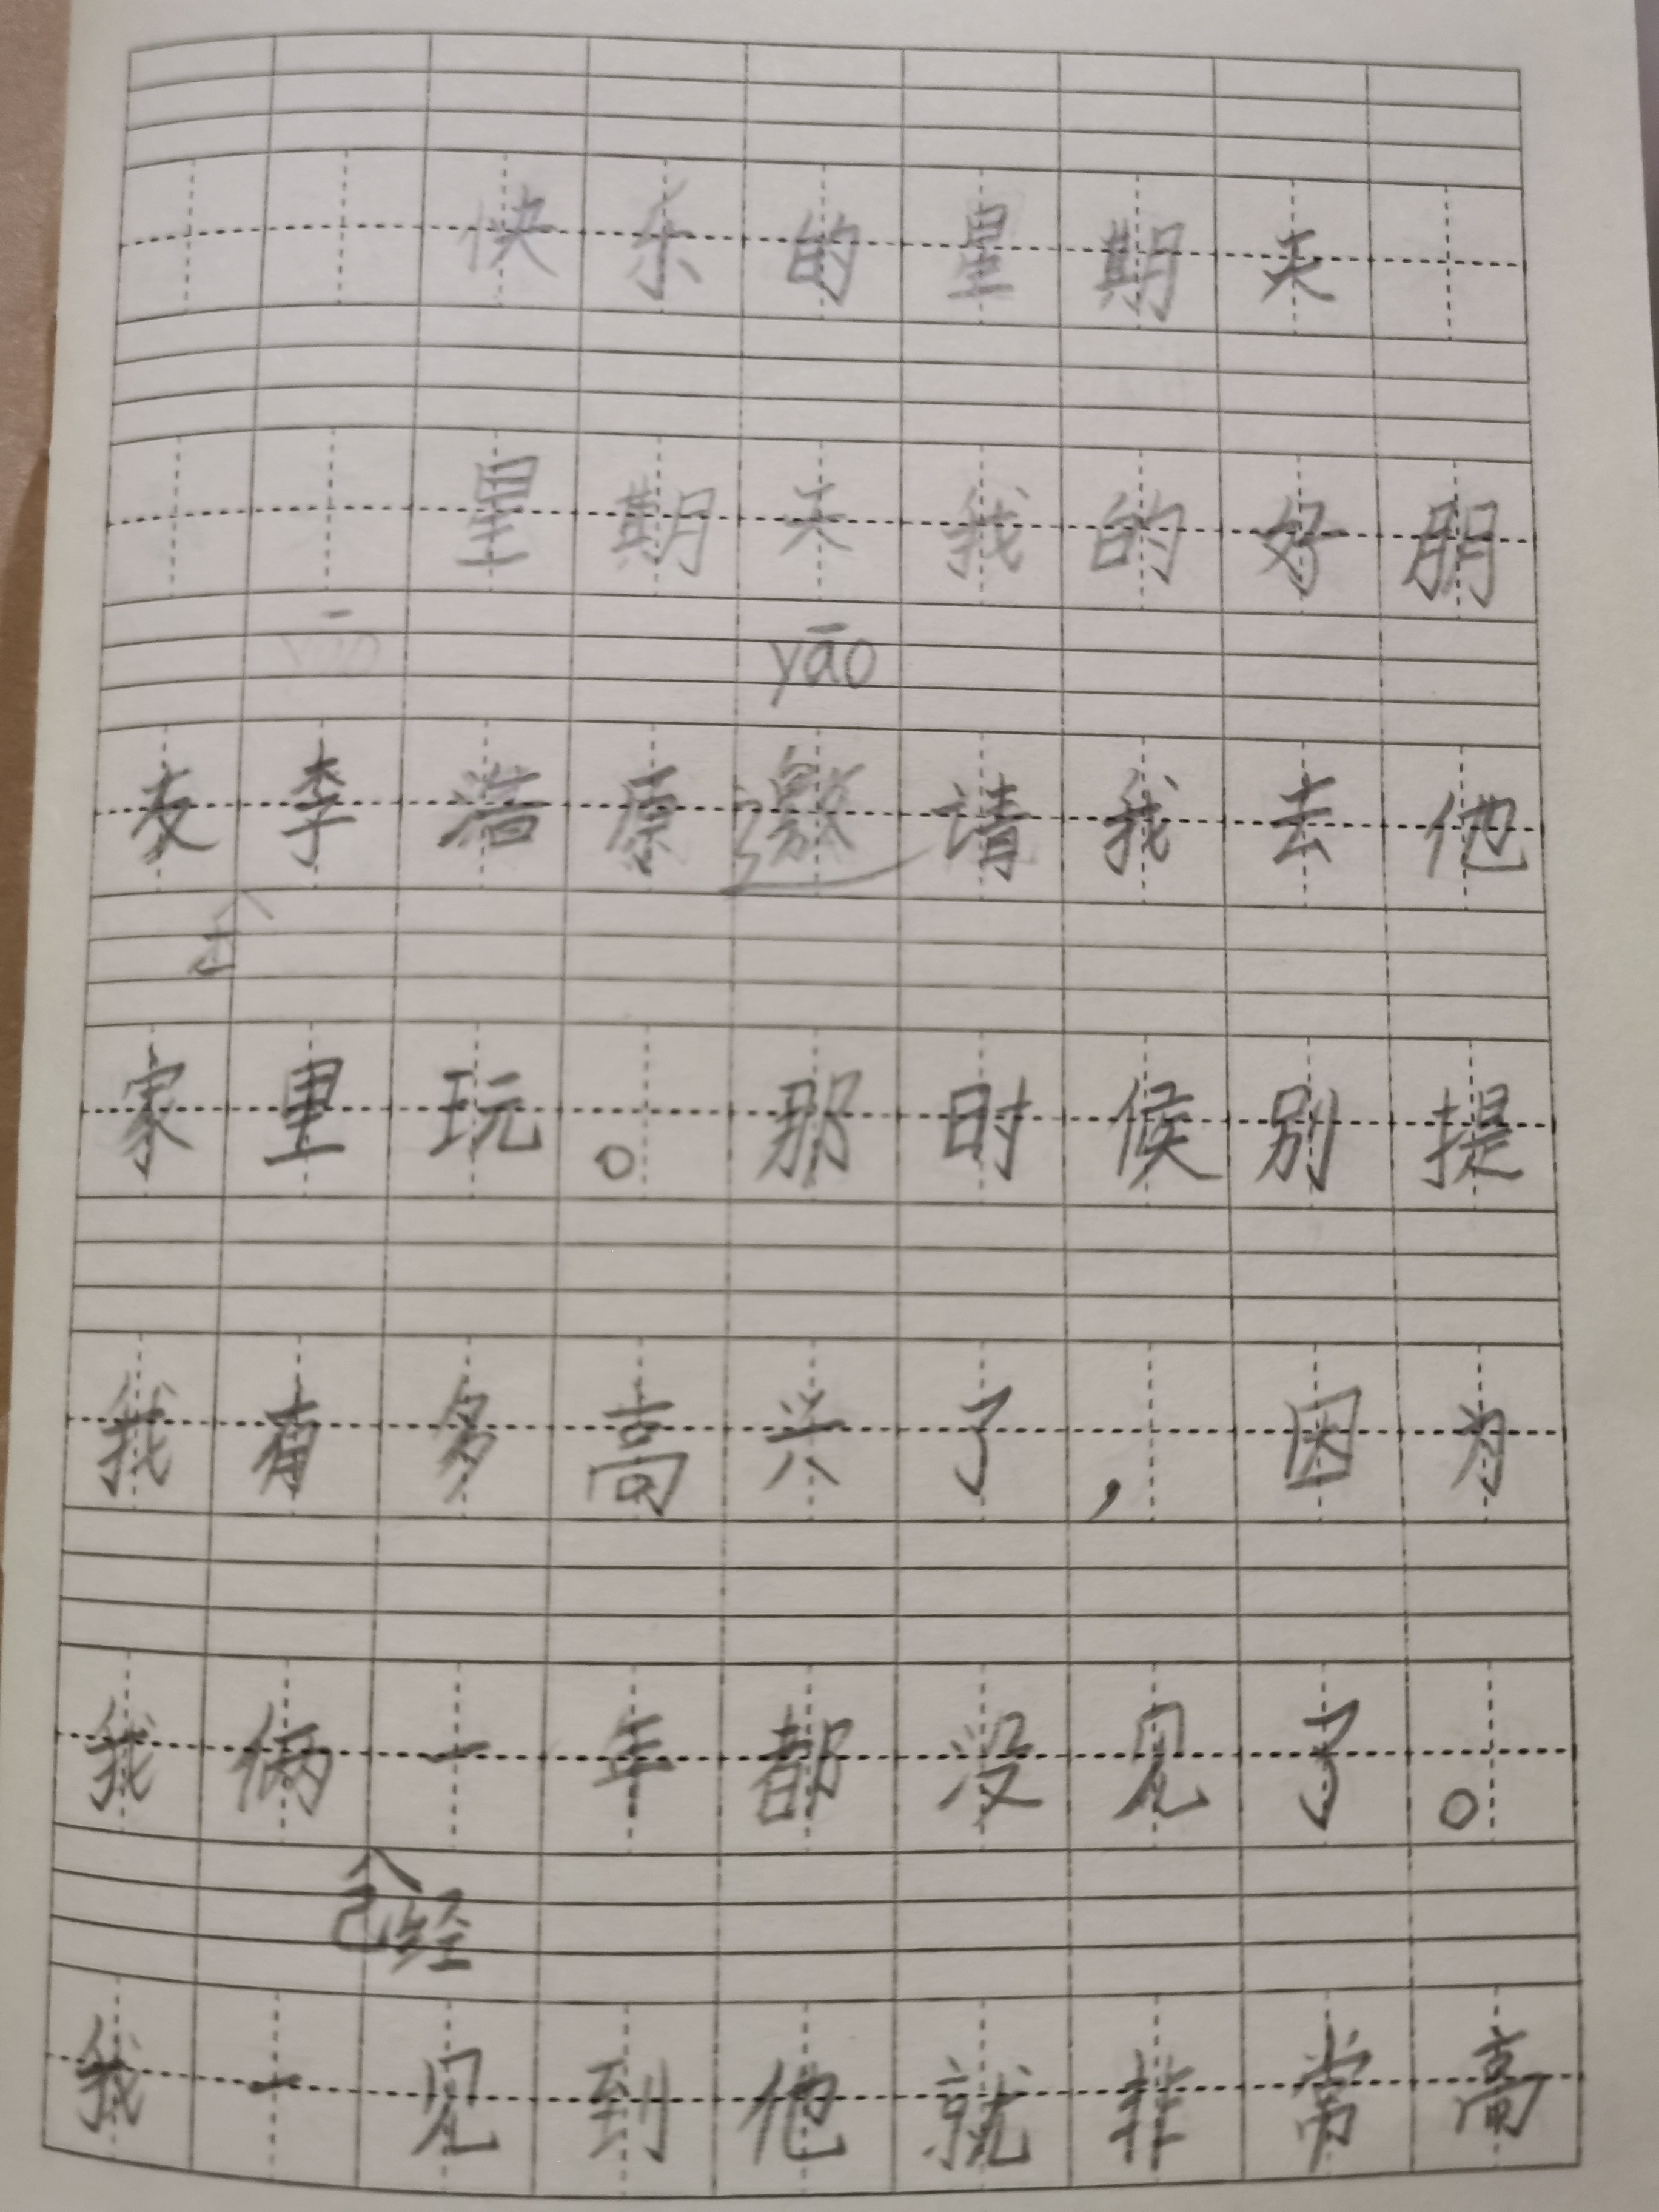 快乐的星期天
星期天我的好朋
yāo
友李浩原邀请我去他
家里玩。那时候别提
我有多高兴了，因为
我俩一年都没见了。
已经
我一见到他就非常高